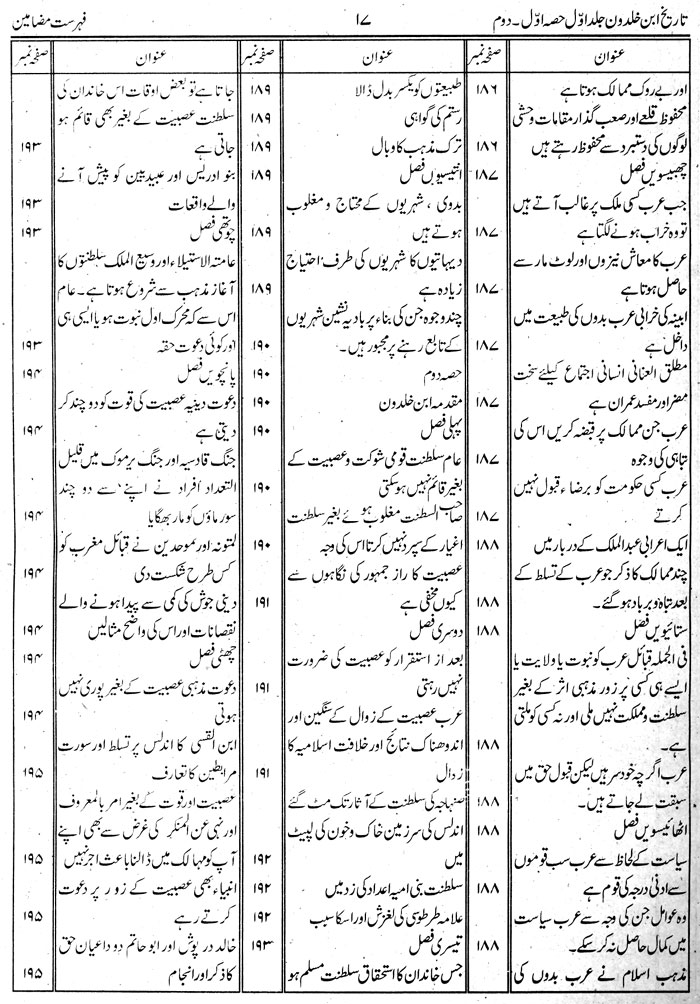 تاریخ ابن خلدون جلد اوّل حصہ اوّل ۔ دوم
۱۷
فہرست مضامین
عنوان
صفحہ نمبر
اور بے روک ممالک ہوتا ہے
۱۸۶
محفوظ قلعے اور صعب گذار مقامات وحشی
لوگوں کی دستبرد سے محفوظ رہتے ہیں
۱۸۶
چھبیسویں فصل
۱۸۷
جب عرب کسی ملک پر غالب آتے ہیں
تو وہ خراب ہونے لگتا ہے
۱۸۷
عرب کا معاش نیزوں اور لوٹ مار سے
حاصل ہوتا ہے
۱۸۷
ابینہ کی خرابی عرب بدوں کی طبیعت میں
داخل ہے
۱۸۷
مطلق العنانی انسانی اجتماع کیلئے سخت
مضر اور مفسد عمران ہے
۱۸۷
عرب جن ممالک پر قبضہ کریں اس کی
تباہی کی وجوہ
۱۸۷
عرب کسی حکومت کو برضاء قبول نہیں
کرتے
۱۸۷
ایک اعرابی عبدالملک کے دربار میں
۱۸۸
چند ممالک کا ذکر جو عرب کے تسلط کے
بعد تباہ و برباد ہو گئے۔
۱۸۸
ستائیویں فصل
۱۸۸
فی الجملہ قبائل عرب کو نبوت یا ولایت یا
ایسے ہی کسی پر زور مذہبی اثر کے بغیر
سلطنت و مملکت نہیں ملی اور نہ کسی کو ملتی
ہے۔
۱۸۸
عرب اگرچہ خود سر ہیں لیکن قبول حق میں
سبقت لے جاتے ہیں۔
۱۸۸
اٹھائیسویں فصل
۱۸۸
سیاست کے لحاظ سے عرب سب قوموں
سے ادنیٰ درجہ کی قوم ہے
۱۸۸
وہ عوامل جن کی وجہ سے عرب سیاست
میں کمال حاصل نہ کر سکے۔
۱۸۸
مذہب اسلام نے عرب بدوں کی
عنوان
صفحہ نمبر
طبیعتوں کو یکسر بدل ڈالا
۱۸۹
رستم کی گواہی
۱۸۹
ترک مذہب کا وبال
۱۸۹
انتیسویں فصل
۱۸۹
بدوی ، شہریوں کے محتاج و مغلوب
ہوتے ہیں
۱۸۹
دیہاتیوں کا شہریوں کی طرف احتیاج
زیادہ ہے
۱۸۹
چند وجوہ جن کی بناء پر بادیہ نشین شہریوں
کے تابع رہنے پر مجبور ہیں۔
۱۹۰
حصہ دوم
۱۹۰
مقدمہ ابن خلدون
۱۹۰
پہلی فصل
۱۹۰
عام سلطنت قومی شوکت و عصبیت کے
بغیر قائم نہیں ہو سکتی
۱۹۰
صاحب السطنت مغلوب ہوئے بغیر سلطنت
اغیار کے سپرد نہیں کرتا اس کی وجہ
۱۹۰
عصبیت کا راز جمہور کی نگاہوں سے
کیوں مخفی ہے
۱۹۱
دوسری فصل
بعد از استقرار کو عصبیت کی ضرورت
نہیں رہتی
۱۹۱
عرب عصبیت کے زوال کے سنگین اور
اندوھناک نتائج اور خلافت اسلامیہ کا
زدال
۱۹۱
صنہاجہ کی سلطنت کے آثار تک مٹ گئے
اندلس کی سرزمین خاک و خون کی لپیٹ
میں
۱۹۲
سلطنت بنی امیہ اعداد کی زد میں
۱۹۲
علامہ طرطوسی کی لغزش اور اسکا سبب
۱۹۲
تیسری فصل
۱۹۳
جس خاندان کا استحقاق سلطنت مسلم ہو
عنوان
صفحہ نمبر
جاتا ہے تو بعض اوقات اس خاندان کی
سلطنت عصبیت کے بغیر بھی قائم ہو
جاتی ہے
۱۹۳
بنو ادریس اور عبیدیین کو پیش آنے
والے واقعات
۱۹۳
چوتھی فصل
۱۹۳
عامتہ الاستیلاء اور وسیع الملک سلطنتوں کا
آغاز مذہب سے شروع ہوتا ہے۔ عام
اس سے کہ محرک اول نبوت ہو یا ایسی ہی
اور کوئی دعوت حقہ
۱۹۳
پانچویں فصل
۱۹۴
دعوت دینیہ عصبیت کی قوت کو دو چند کر
دیتی ہے
۱۹۴
جنگ قادسیہ اور جنگ یرموک میں قلیل
التعداد افراد نے اپنے سے دو چند
سورماؤں کو مار بھگایا
۱۹۴
لمتونہ اور موحدین نے قبائل مغرب کو
کس طرح شکست دی
۱۹۴
دینی جوش کی کمی سے پیدا ہونے والے
نقصانات اور اس کی واضح مثالیں
۱۹۴
چھٹی فصل
۱۹۴
دعوت مذہبی عصبیت کے بغیر پوری نہیں
ہوتی
۱۹۴
ابن القسی کا اندلس پر تسلط اور سورت
مرابطین کا تعارف
۱۹۵
عصبیت اور قوت کے بغیر امر بالمعروف
اور نہی عن المنکر کی غرض سے بھی اپنے
آپ کو مہالک میں ڈالنا باعث اجر نہیں
۱۹۵
انبیاء بھی عصبیت کے زور پر دعوت
کرتے رہے
۱۹۵
خالد دریوش اور ابو حاتم دو داعیان حق
کا ذکر اور انجام
۱۹۵